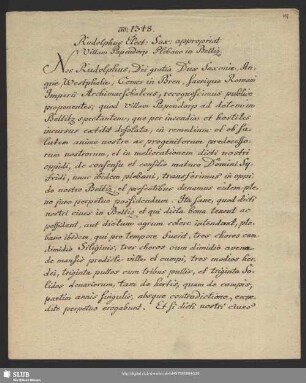 ao. 1348.
Rudolphus Elect: Sax: appropriat
Villam Papendorp Plebano in Beltiz
Nos Rudolphus, Dei gratia Dux Saxoniæ, An-
gariæ Westphaliæ, Comes in Bren, sacrique Romani
Imperii Archimarschalcus, recognoscimus publice
proponentes; quod villam Papendorp ad dotem in
Beltiz spectantem, quæ per incendia et hostiles
incursus extitit desolata, in remedium et ob sa-
lutem animæ nostræ ac progenitorum predeces-
sorum nostrorum, et in meliorationem dicti nostri
oppidi, de consensu et consilio maturo Domini Sy-
fridi, nunc ibidem plebani, transferimus in oppi-
do nostro Beltiz et possessoribus donamus eidem ple-
no jure perpetuo possidendum. Ita sane, quod dicti
nostri cives in Beltiz et qui dicta bona tenent ac
possident, aut dictum agrum colere intendant, ple-
bano ibidem, qui pro tempore fuerit, tres choros cum
dimidio Siliginis, tres choros cum dimidio avenæ
de mansis predictæ villæ et campi, tres modios hor-
dei, triginta pullos cum tribus pullis, et triginta So-
lidos denariorum, tam de hortis, quam de campis,
partim annis singulis, absque contradictione, expe-
dite perpetuo erogabunt. Et si dicti nostri cives
SLUB